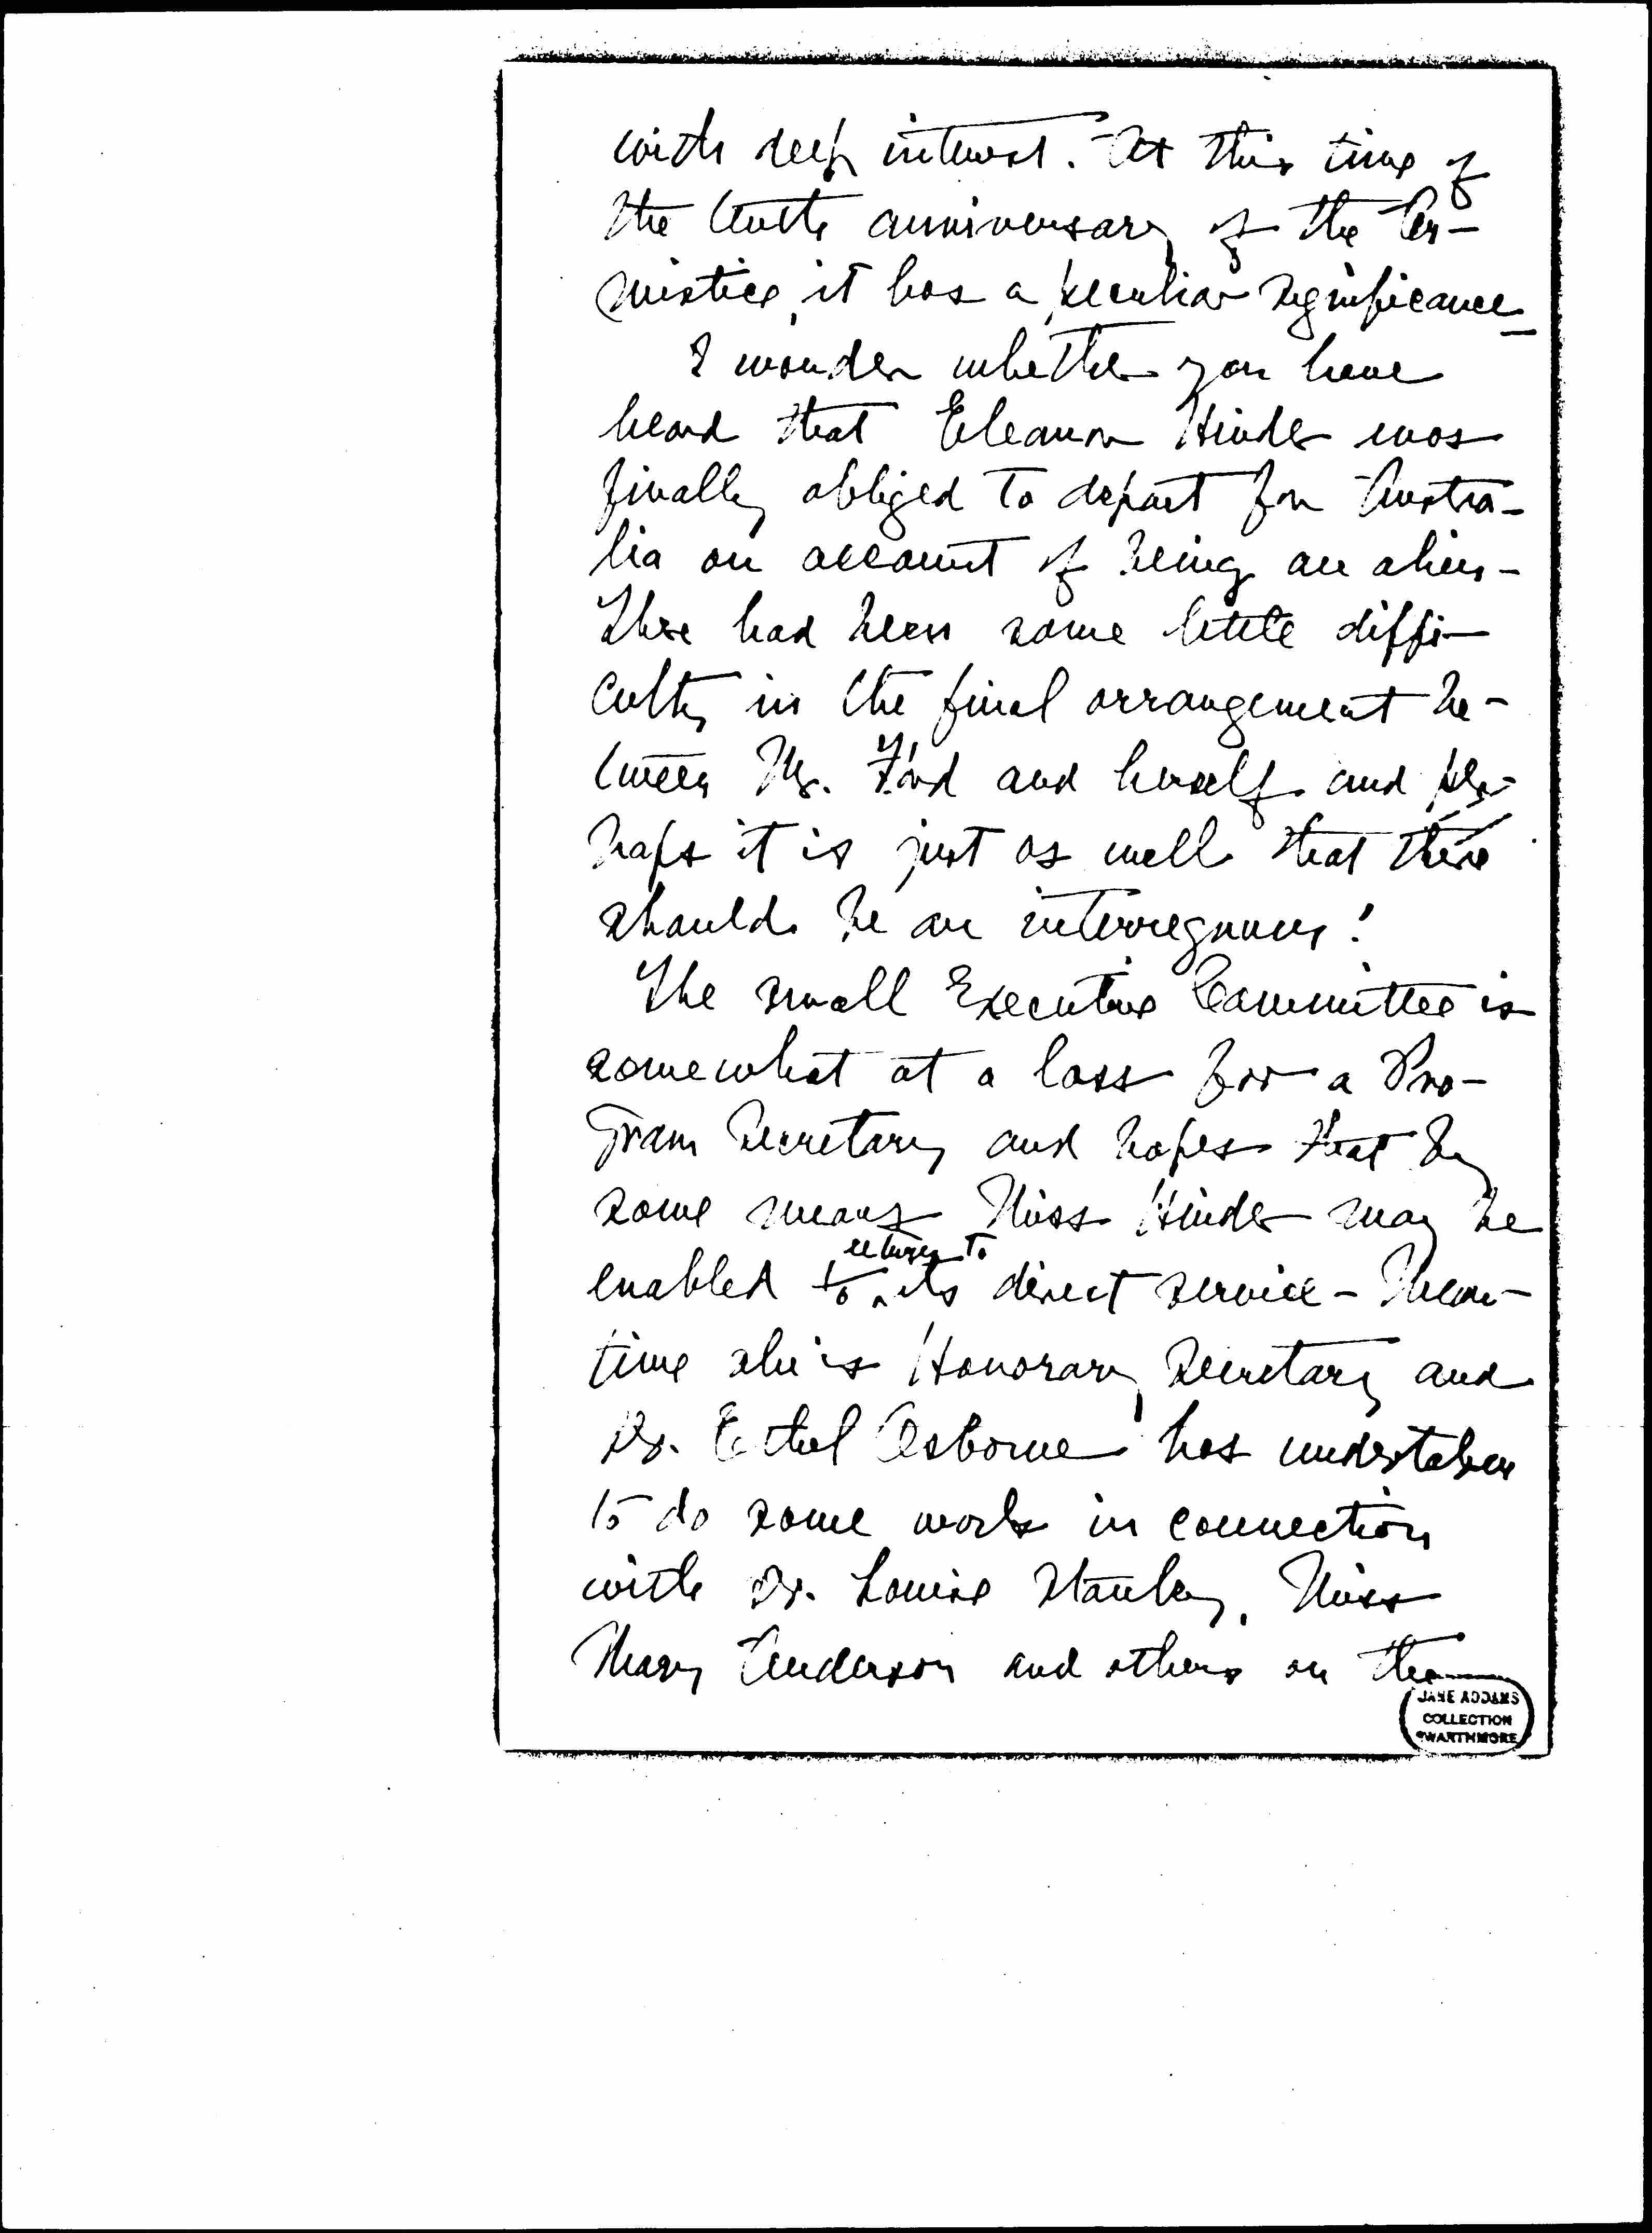 with deep interest. At this time of
the tenth anniversary of the Ar-
mistice, it has a peculiar significance
I wonder whether you have
heard that Eleanor Hinder was
finally obliged to depart for Austra-
lia on account of being an alien -
There had been some little diffi-
culty in the final arrangement be-
tween Mr. Ford and herself and per-
haps it is just as well that there
should be an interregnum!
The small Executive Committee is
somewhat at a loss for a Pro-
gram Secretary and hopes that by
some means Miss Hinder may be
return to
enabled to ^ its direct service - Mean-
time she is Honorary Secretary and
Dr. Ethel Osborne has undertaken
to do some work in connection
with Dr. Louise Stanley, Miss
Mary Anderson and others on the
JANE ADDAMS
COLLECTION
SWARTHMORE